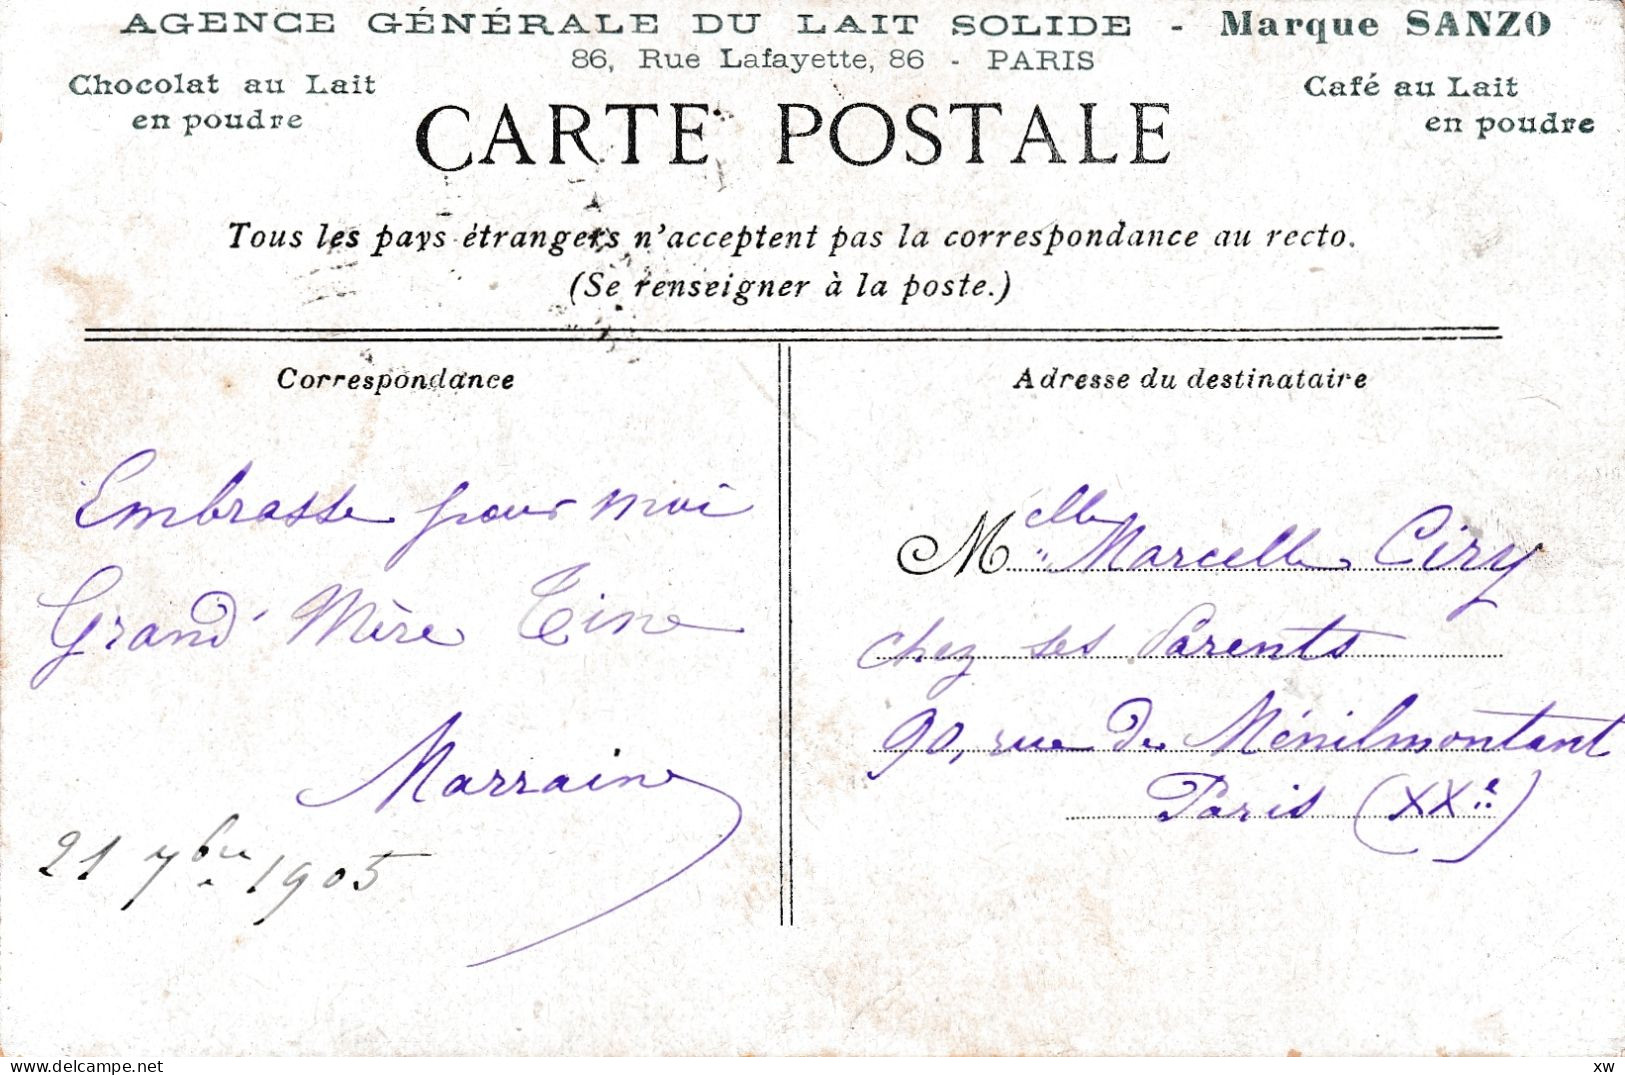 AGENCE GÉNÉRALE DU LAIT SOLIDE - Marque SANZO
86, Rue Lafayette, 86 - PARIS
Chocolat au Lait
en poudre
Café au Lait
en poudre
CARTE POSTALE
Tous les pays étrangers n'acceptent pas la correspondance au recto.
(Se renseigner à la poste.)
Correspondance
Embrasse pour moi
Grand' Mère Tine
Marraine
21 7bre 1905
Adresse du destinataire
Melle Marcelle Ciry
chez ses Parents
90, rue de Ménilmontant
Paris (XXe)
delcampe.net
xw